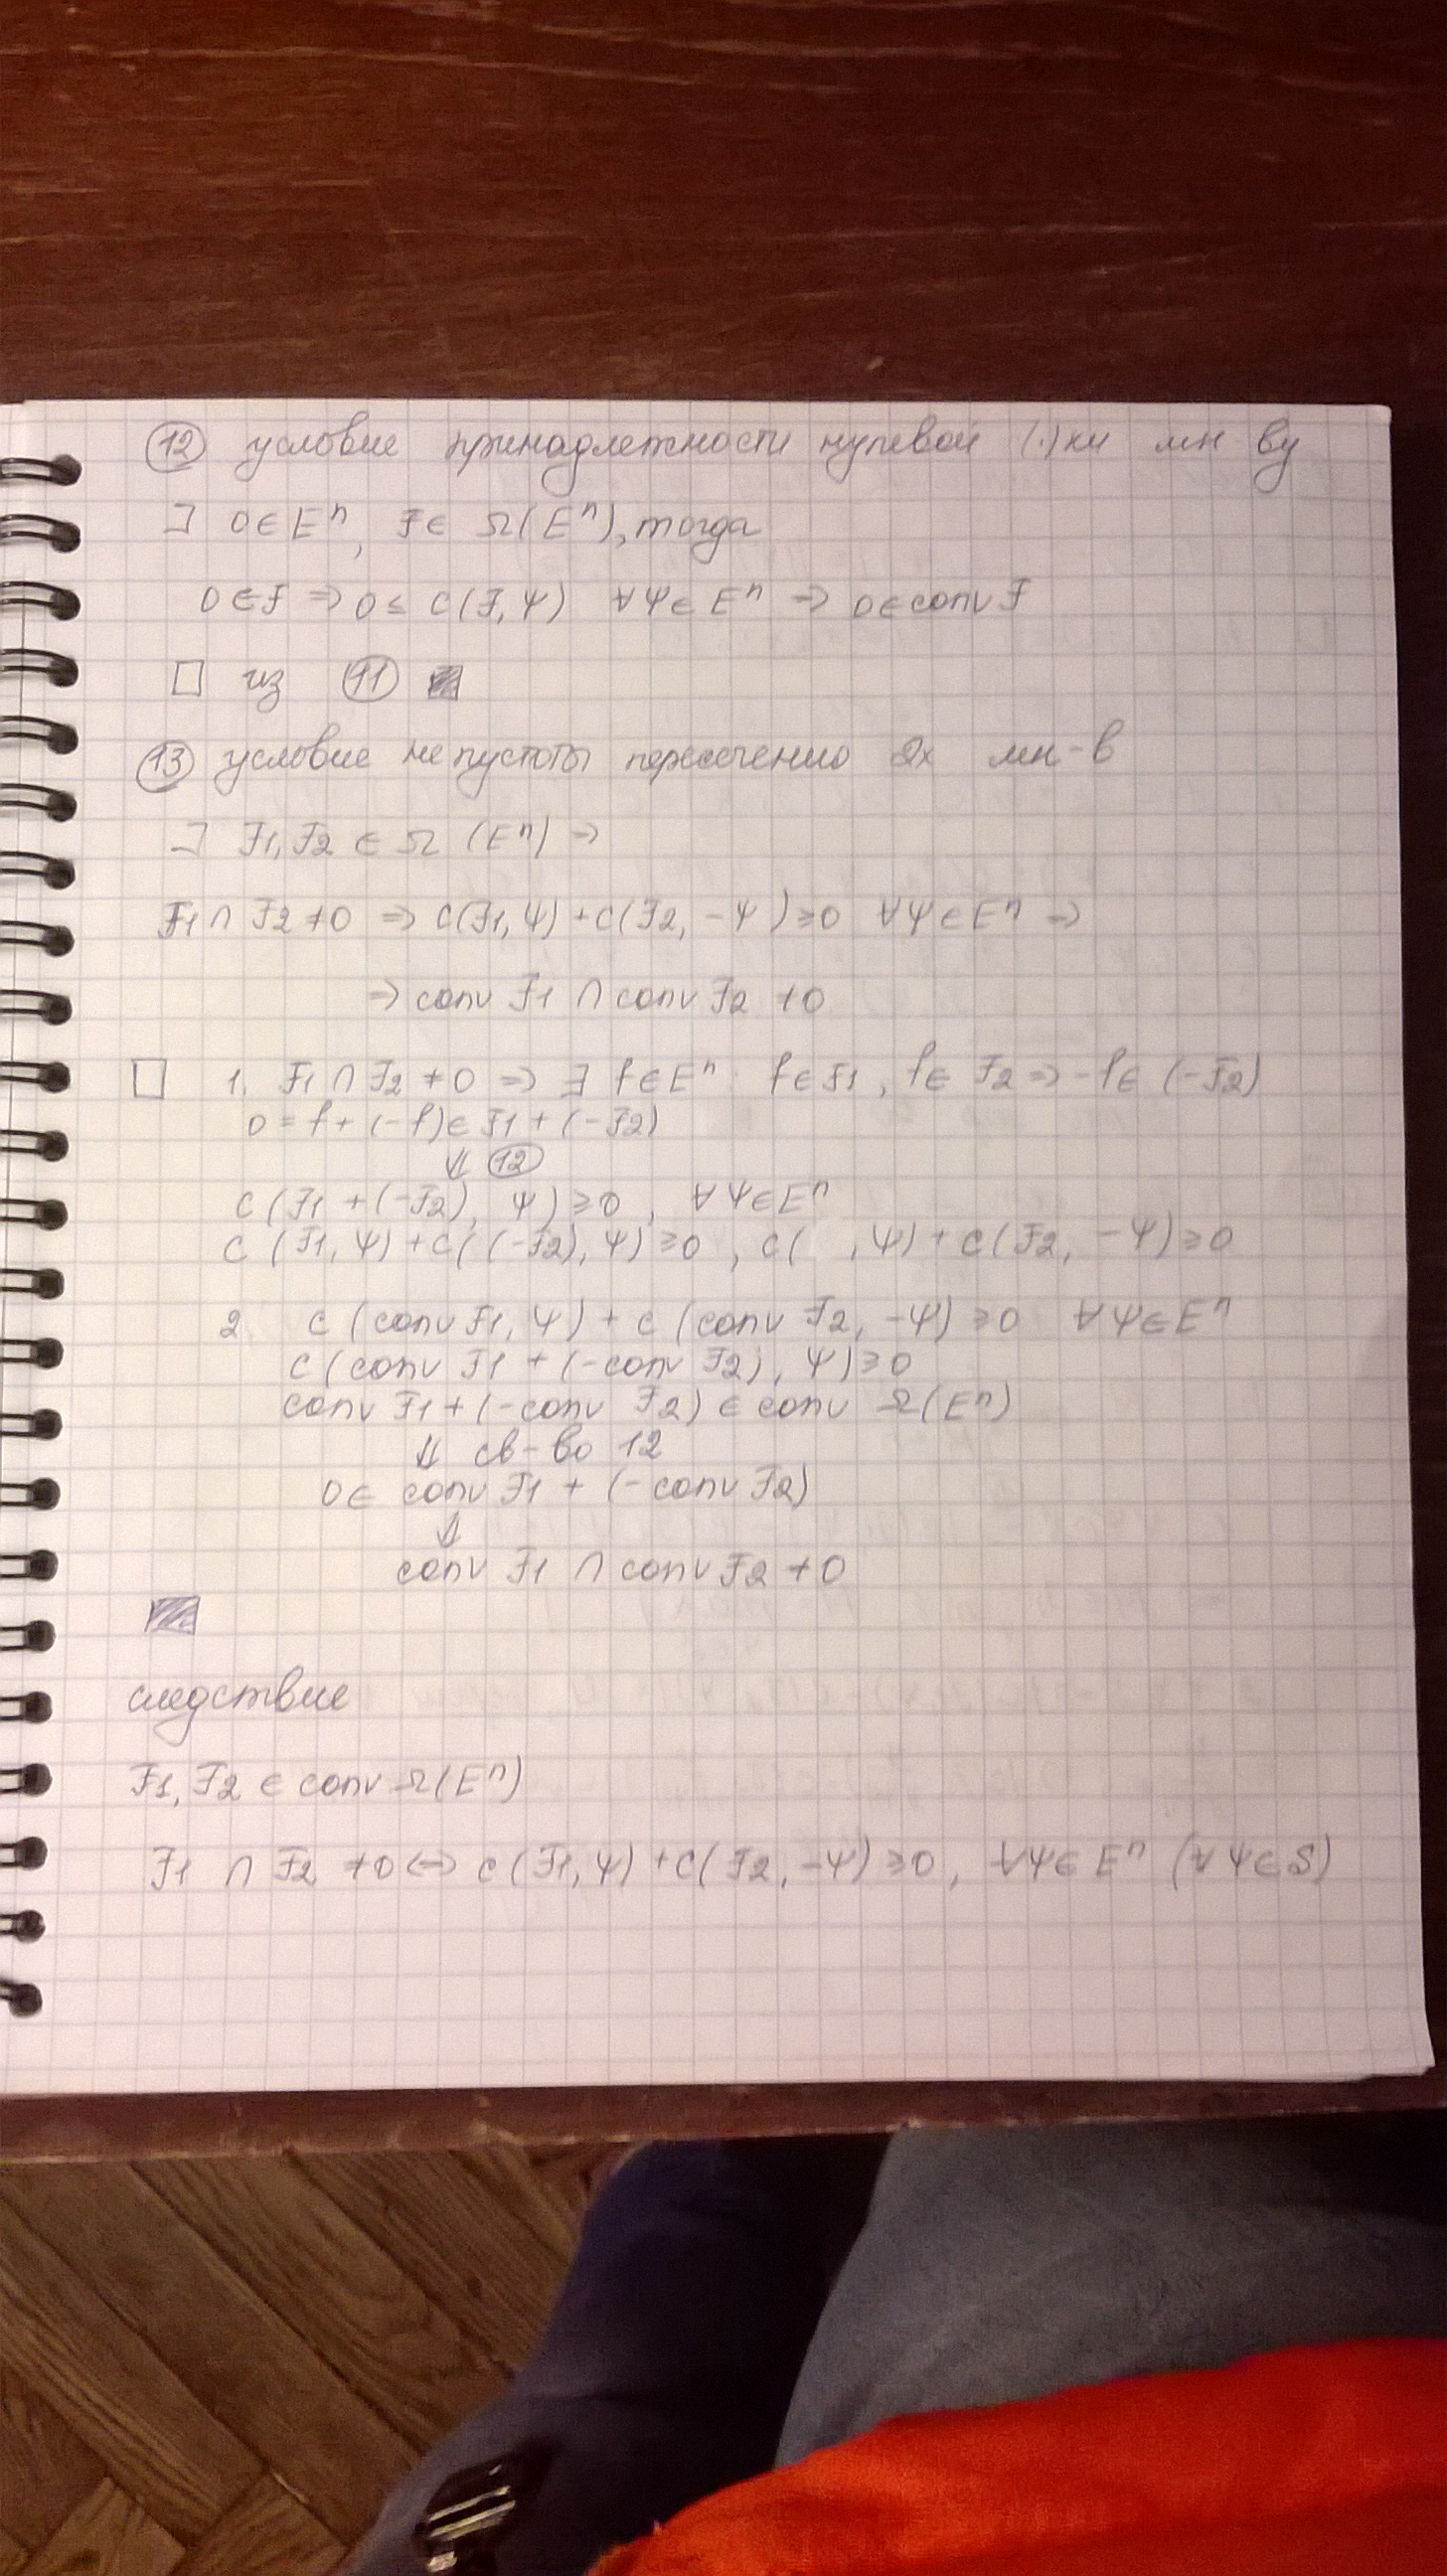 ⑫ условие принадлежности нулевой (·)ки мн-ву
∃ 0 ∈ Eⁿ, F ∈ Ω(Eⁿ), тогда
0 ∈ F ⇒ 0 ≤ C(F, Ψ) ∀Ψ ∈ Eⁿ ⇒ 0 ∈ conv F
□ из ⑪ ■
⑬ условие не пустоты пересечению 2х мн-в
∃ F1, F2 ∈ Ω (Eⁿ) ⇒
F1 ∩ F2 ≠ 0 ⇒ C(F1, Ψ) + C(F2, -Ψ) ≥ 0 ∀Ψ ∈ Eⁿ ⇒
⇒ conv F1 ∩ conv F2 ≠ 0
□ 1. F1 ∩ F2 ≠ 0 ⇒ ∃ f ∈ Eⁿ: f ∈ F1, f ∈ F2 ⇒ -f ∈ (-F2)
0 = f + (-f) ∈ F1 + (-F2)
⇓ ⑫
C (F1 + (-F2), Ψ) ≥ 0, ∀Ψ ∈ Eⁿ
C (F1, Ψ) + C((-F2), Ψ) ≥ 0, C( , Ψ) + C(F2, -Ψ) ≥ 0
2 C (conv F1, Ψ) + C (conv F2, -Ψ) ≥ 0 ∀Ψ ∈ Eⁿ
C (conv F1 + (-conv F2), Ψ) ≥ 0
conv F1 + (-conv F2) ∈ conv Ω(Eⁿ)
⇓ св-во 12
0 ∈ conv F1 + (-conv F2)
⇓
conv F1 ∩ conv F2 ≠ 0
■
следствие
F1, F2 ∈ conv Ω(Eⁿ)
F1 ∩ F2 ≠ 0 ⇔ C(F1, Ψ) + C(F2, -Ψ) ≥ 0, ∀Ψ ∈ Eⁿ (∀Ψ ∈ S)